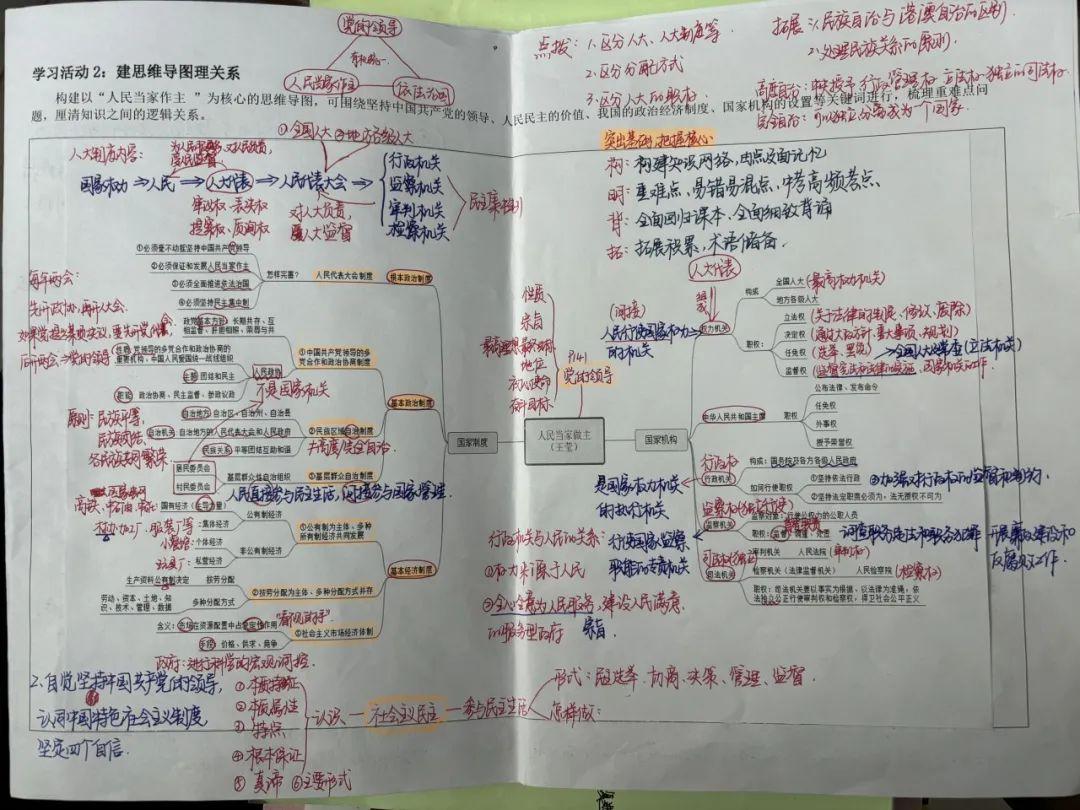 党的领导
有机统一
人民当家作主
依法治国
点拨：1.区分人大、人大制度等
2.区分分配方式
3.区分人大的职权
拓展：1.民族自治与港澳自治的区别
2.处理民族关系的原则
高度自治：中央授予 行政管理权 立法权 独立的司法权
完全自治：可以独立分离成为一个国家
学习活动2：建思维导图理关系
构建以“人民当家作主 ”为核心的思维导图，可围绕坚持中国共产党的领导、人民民主的价值、我国的政治经济制度、国家机构的设置等关键词进行，梳理重难点问
题，厘清知识之间的逻辑关系。
①全国人大 ②地方各级人大
人大制度内容：
对人民负责，
受人民监督
国家权力⇒人民⇒人大代表⇒人民代表大会⇒
行政机关
监察机关
审判机关
检察机关
民主集中制
审议权、表决权
提案权、质询权
对人大负责，
受人大监督
突出基础，把握核心
构：构建知识网络，由点及面记忆
明：重难点、易错易混点、中考高频考点
背：全面回归课本，全面细致背诵
拓：拓展积累，术语储备
①必须毫不动摇坚持中国共产党领导
②必须保证和发展人民当家作主
③必须全面推进依法治国
④必须坚持民主集中制
怎样完善？
人民代表大会制度
根本政治制度
每年两会：
先开政协，再开人大会
同开两会⇒党的领导
政党基本方针：长期共存、互
相监督、肝胆相照、荣辱与共
性质 党领导的多党合作和政治协商的
重要机构，中国人民爱国统一战线组织
主题 团结和民主
职能 政治协商、民主监督、参政议政
人民政协
是国家机关
①中国共产党领导的多
党合作和政治协商制度
基本政治制度
原则：民族平等、
民族团结、
各民族共同繁荣
自治地方 自治区、自治州、自治县
自治机关：自治地方的人民代表大会和人民政府
民族关系 平等团结互助和谐
②民族区域自治制度
≠高度/完全自治
居民委员会
村民委员会
基层群众性自治组织
③基层群众自治制度
人民直接参与民主生活，间接参与国家管理.
国家制度
人民当家做主
（王莹）
国家机构
国有经济（主导力量）
集体经济
公有制经济
个体经济
私营经济
非公有制经济
①公有制为主体、多种
所有制经济共同发展
基本经济制度
生产资料公有制决定
按劳分配
劳动、资本、土地、知
识、技术、管理、数据
多种分配方式
②按劳分配为主体、多种分配方式并存
含义：市场在资源配置中占决定性作用
手段 价格、供求、竞争
③社会主义市场经济体制
政府：进行科学的宏观调控
性质
宗旨
地位
奋斗目标
P141
党的领导
人大代表
组成
(间接)
人民行使国家权力
的机关
权力机关
构成
全国人大（最高权力机关）
地方各级人大
职权：
立法权（关于法律的制定、修改、废除）
决定权（通过大政方针、重大事项、规划）
任免权（选举、罢免）
监督权
中华人民共和国主席
职权
公布法律、发布命令
任免权
外事权
授予荣誉权
行政权
行政机关
构成：国务院及各方各级人民政府
如何行使职权
①坚持依法行政
②坚持法定职责必须为，法无授权不可为
③加强对行政权的监督和制约
是国家权力机关
的执行机关
监察机关
监察对象：行使公权力的公职人员
职权：监督、调查、处置
调查职务违法和职务犯罪
开展廉政建设和
反腐败工作.
行使国家监察
职能的专责机关
行政机关与人民的关系：
①权力来源于人民
②全心全意为人民服务，建设人民满意
的服务型政府
宗旨
司法机关
审判机关 人民法院（审判权）
检察机关（法律监督机关） 人民检察院（检察权）
职权：司法机关要以事实为根据、以法律为准绳，依
法独立公正行使审判权和检察权，捍卫社会公平正义
2.自觉坚持中国共产党的领导，
认同中国特色社会主义制度
坚定四个自信
①本质特征
②本质属性
③特点
④根本保证
⑤真谛 ⑥主要形式
认识 — 社会主义民主 — 参与民主生活
形式：民主选举、协商、决策、管理、监督
怎样做：